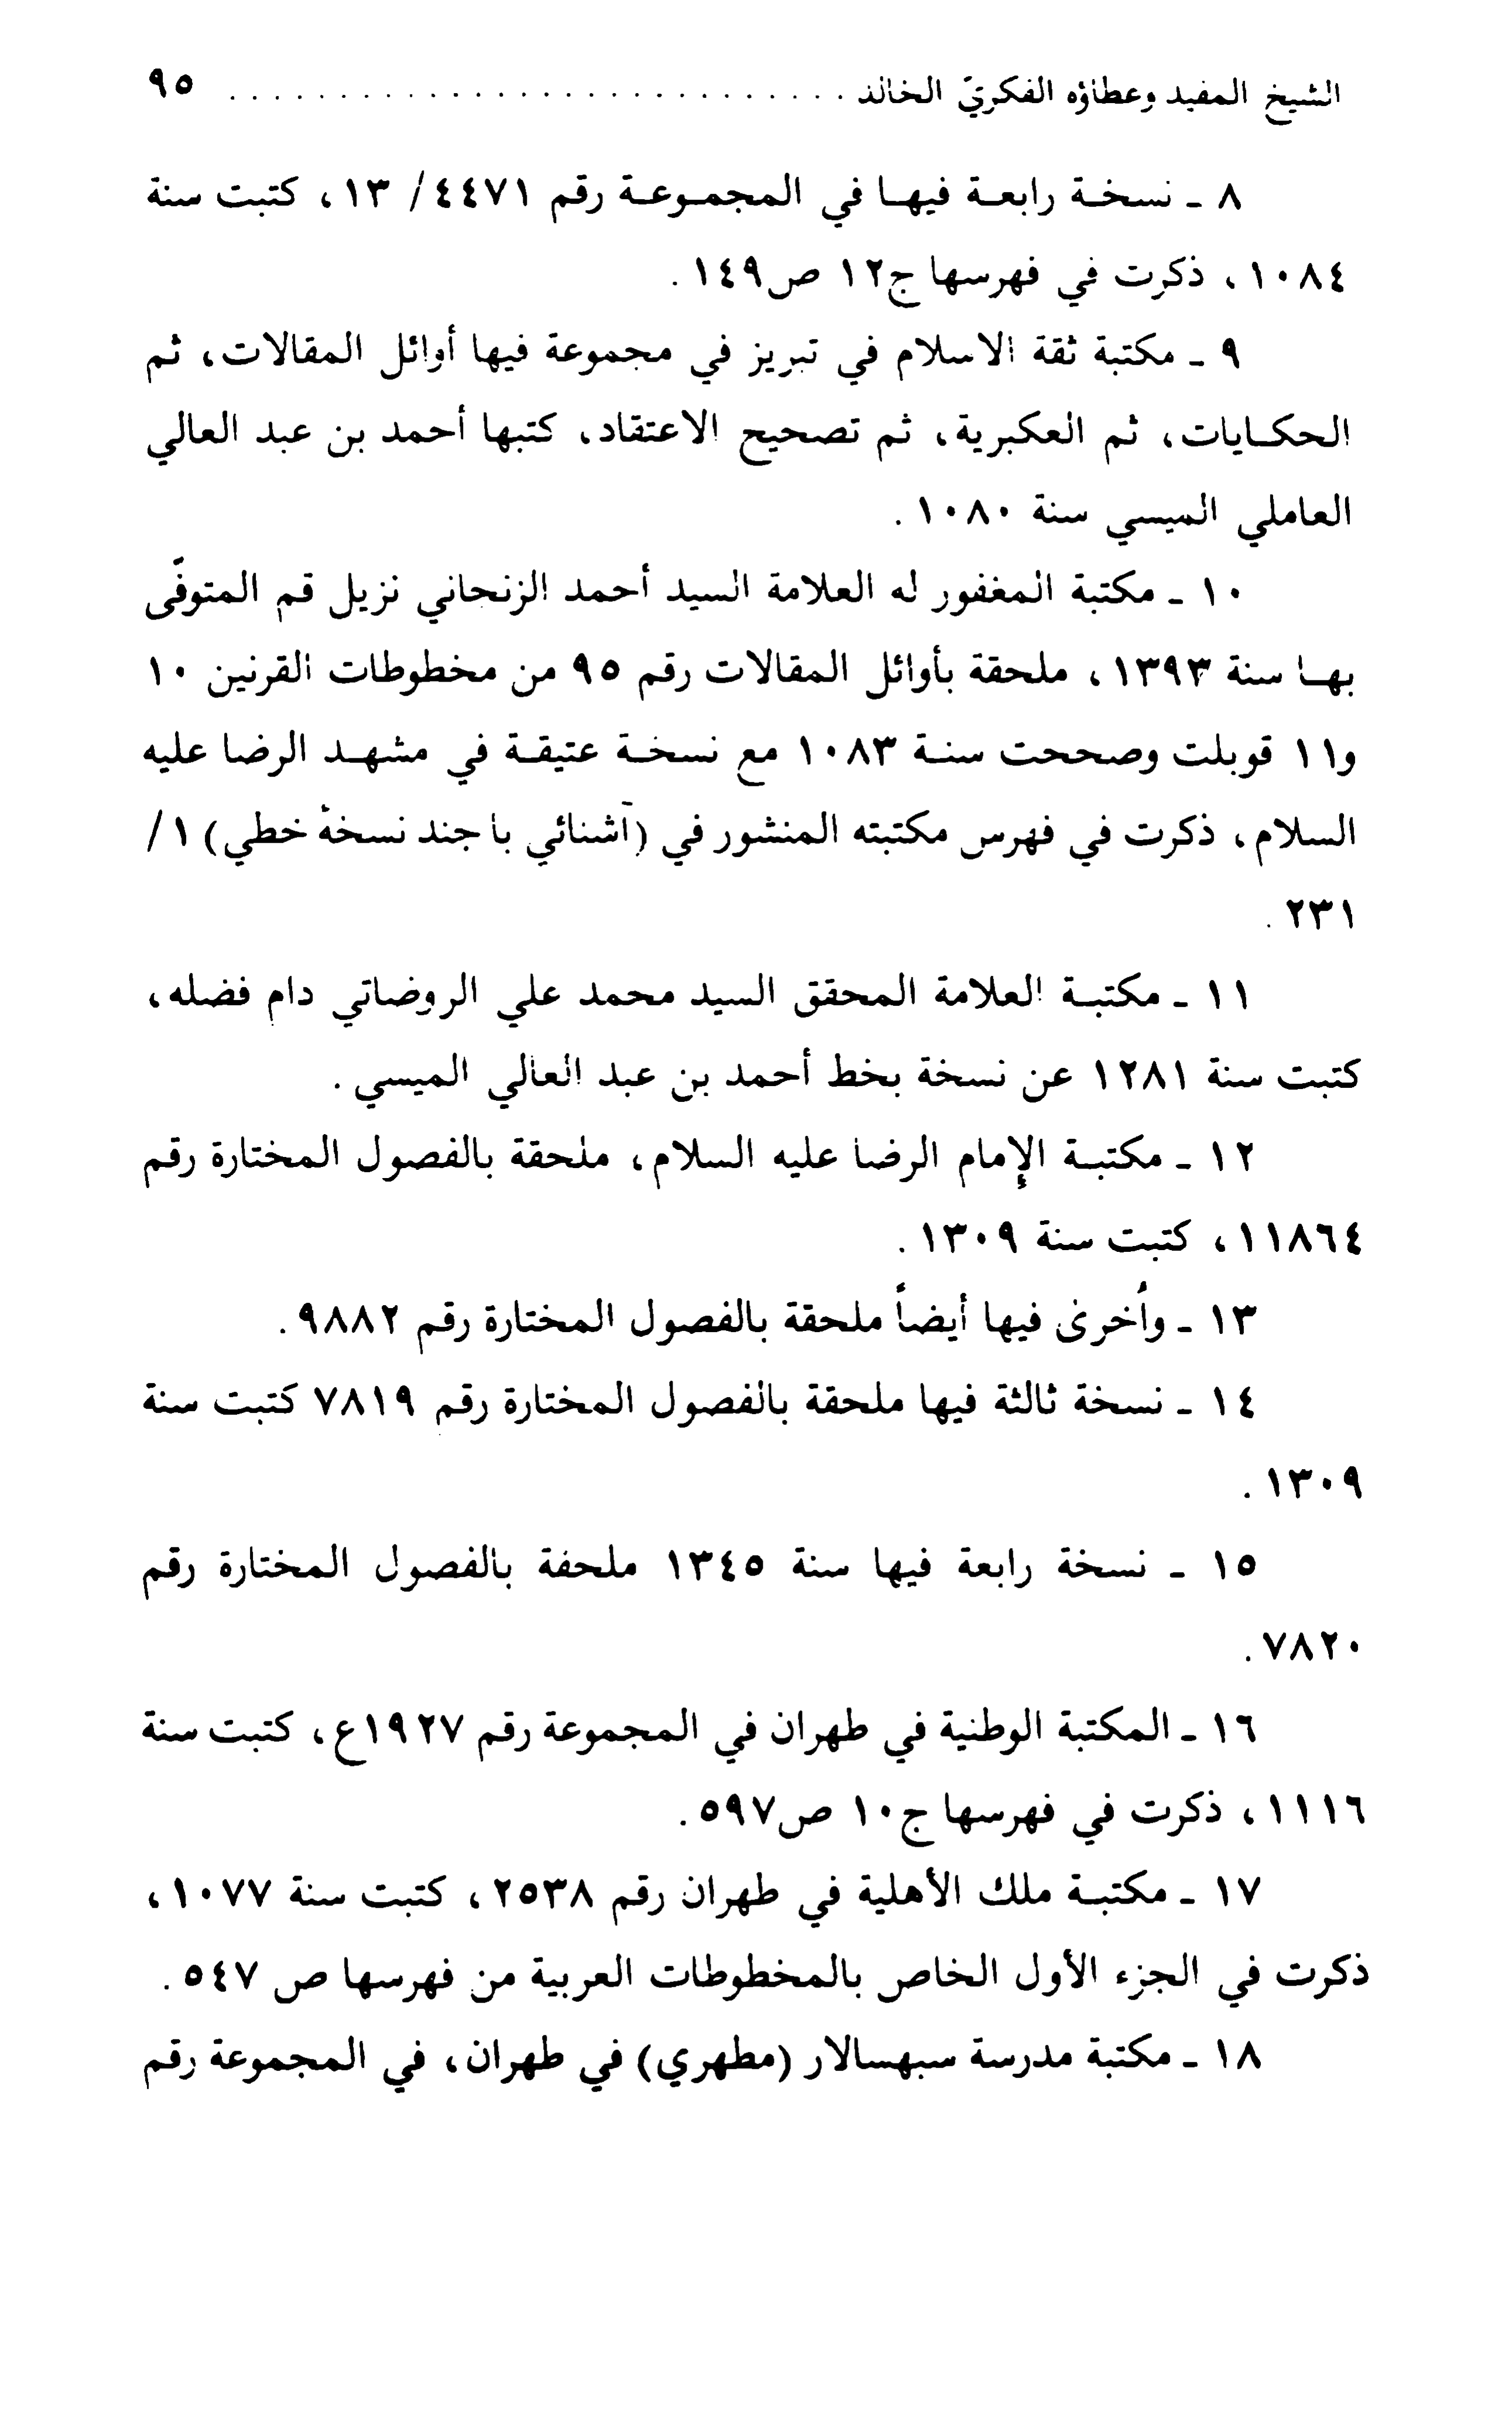 الشيخ المفيد وعطاؤه الفكريّ الخالد ............................ ٩٥
٨ ـ نسخة رابعة فيها في المجموعة رقم ٤٤٧١/ ١٣، كتبت سنة
١٠٨٤، ذكرت في فهرسها ج١٢ ص١٤٩.
٩ ـ مكتبة ثقة الاسلام في تبريز في مجموعة فيها أوائل المقالات، ثم
الحكايات، ثم العكبرية، ثم تصحيح الاعتقاد، كتبها أحمد بن عبد العالي
العاملي الميسي سنة ١٠٨٠.
١٠ ـ مكتبة المغفور له العلامة السيد أحمد الزنجاني نزيل قم المتوفّى
بها سنة ١٣٩٣، ملحقة بأوائل المقالات رقم ٩٥ من مخطوطات القرنين ١٠
و١١ قوبلت وصححت سنة ١٠٨٣ مع نسخة عتيقة في مشهد الرضا عليه
السلام، ذكرت في فهرس مكتبته المنشور في (آشنائي با جند نسخهٔ خطي) ١/
٢٣١.
١١ ـ مكتبة العلامة المحقق السيد محمد علي الروضاتي دام فضله،
كتبت سنة ١٢٨١ عن نسخة بخط أحمد بن عبد العالي الميسي.
١٢ ـ مكتبة الإمام الرضا عليه السلام، ملحقة بالفصول المختارة رقم
١١٨٦٤، كتبت سنة ١٣٠٩.
١٣ ـ وأُخرى فيها أيضاً ملحقة بالفصول المختارة رقم ٩٨٨٢.
١٤ ـ نسخة ثالثة فيها ملحقة بالفصول المختارة رقم ٧٨١٩ كتبت سنة
١٣٠٩.
١٥ ـ نسخة رابعة فيها سنة ١٣٤٥ ملحقة بالفصول المختارة رقم
٧٨٢٠.
١٦ ـ المكتبة الوطنية في طهران في المجموعة رقم ١٩٢٧ع، كتبت سنة
١١١٦، ذكرت في فهرسها ج١٠ ص٥٩٧.
١٧ ـ مكتبة ملك الأهلية في طهران رقم ٢٥٣٨، كتبت سنة ١٠٧٧،
ذكرت في الجزء الأول الخاص بالمخطوطات العربية من فهرسها ص ٥٤٧.
١٨ ـ مكتبة مدرسة سبهسالار (مطهري) في طهران، في المجموعة رقم